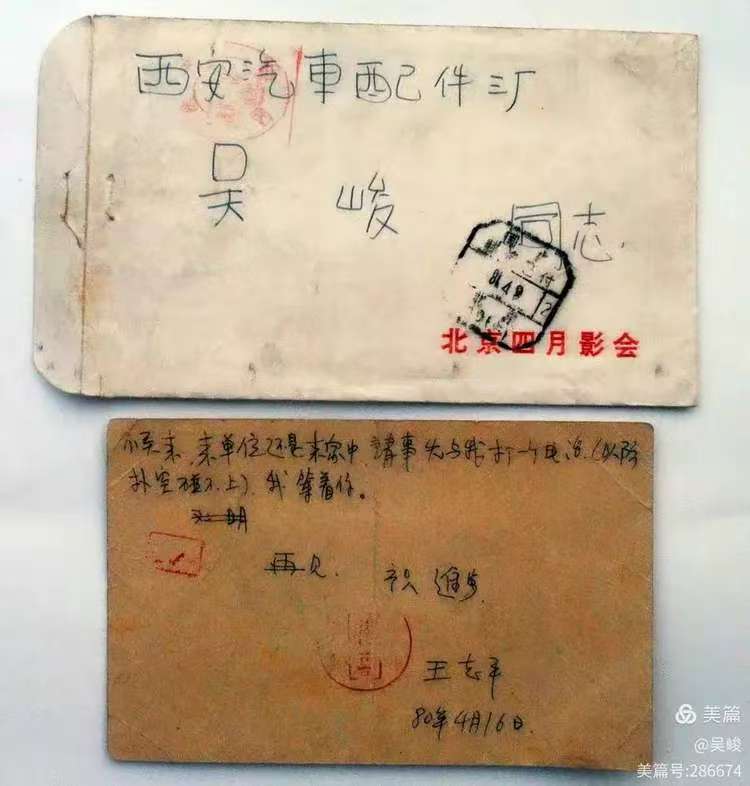 西安汽車配件三厂
吴峻 同志.
81.4.9
2
北京四月影会
来单位还是来家中,請事先与我打一个电话.(以防
扑空碰不上)我等着你。
再见.
祝 進步
王志平
80年4月16日.
美篇
@吴峻
美篇号:286674